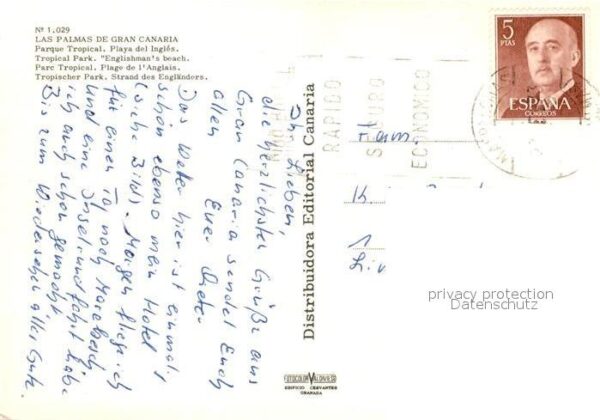 Nº 1.029
LAS PALMAS DE GRAN CANARIA
Parque Tropical. Playa del Inglés.
Tropical Park. "Englishman's beach.
Parc Tropical. Plage de l'Anglais.
Tropischer Park. Strand des Engländers.
Ihr Lieben,
die herzlichsten Grüße aus
Gran Canaria sendet Euch
allen Euer Dieter
Das Wetter hier ist einmal,
schön ebenso mein Hotel
(siehe Bild). Morgen fliege ich
für einen Tag nach Marakesch
und eine Inselrundfahrt habe
ich auch schon gemacht.
Bis zum Wiedersehen alles Gute
Distribuidora Editorial Canaria
RAPIDO
SEGURO
ECONOMICO
5
PTAS
ESPAÑA
CORREOS
Fam.
K.
1
Liv
privacy protection
Datenschutz
FOTOCOLOR VALDIVIESO
EDIFICIO CERVANTES
GRANADA